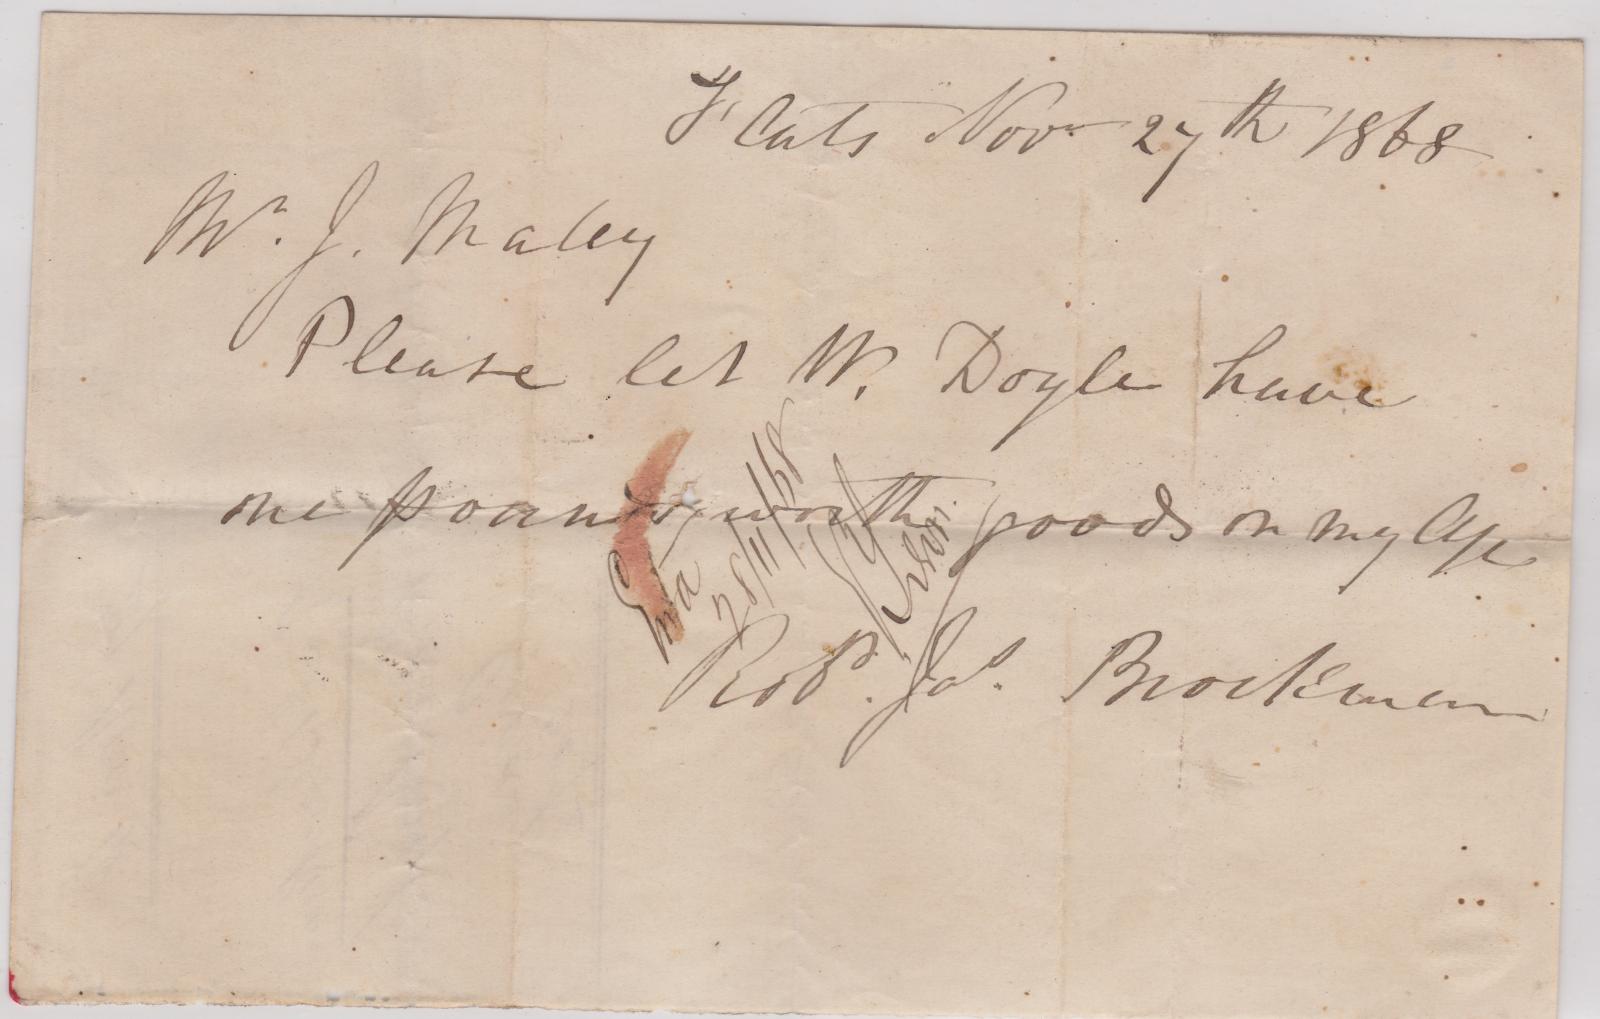 Flats Nov 27th 1868
Mr. J. Maley
Please let W. Doyle have
one pounds worth goods on my A/c
Robt. Jas. Brockman
Entd
28/11/68